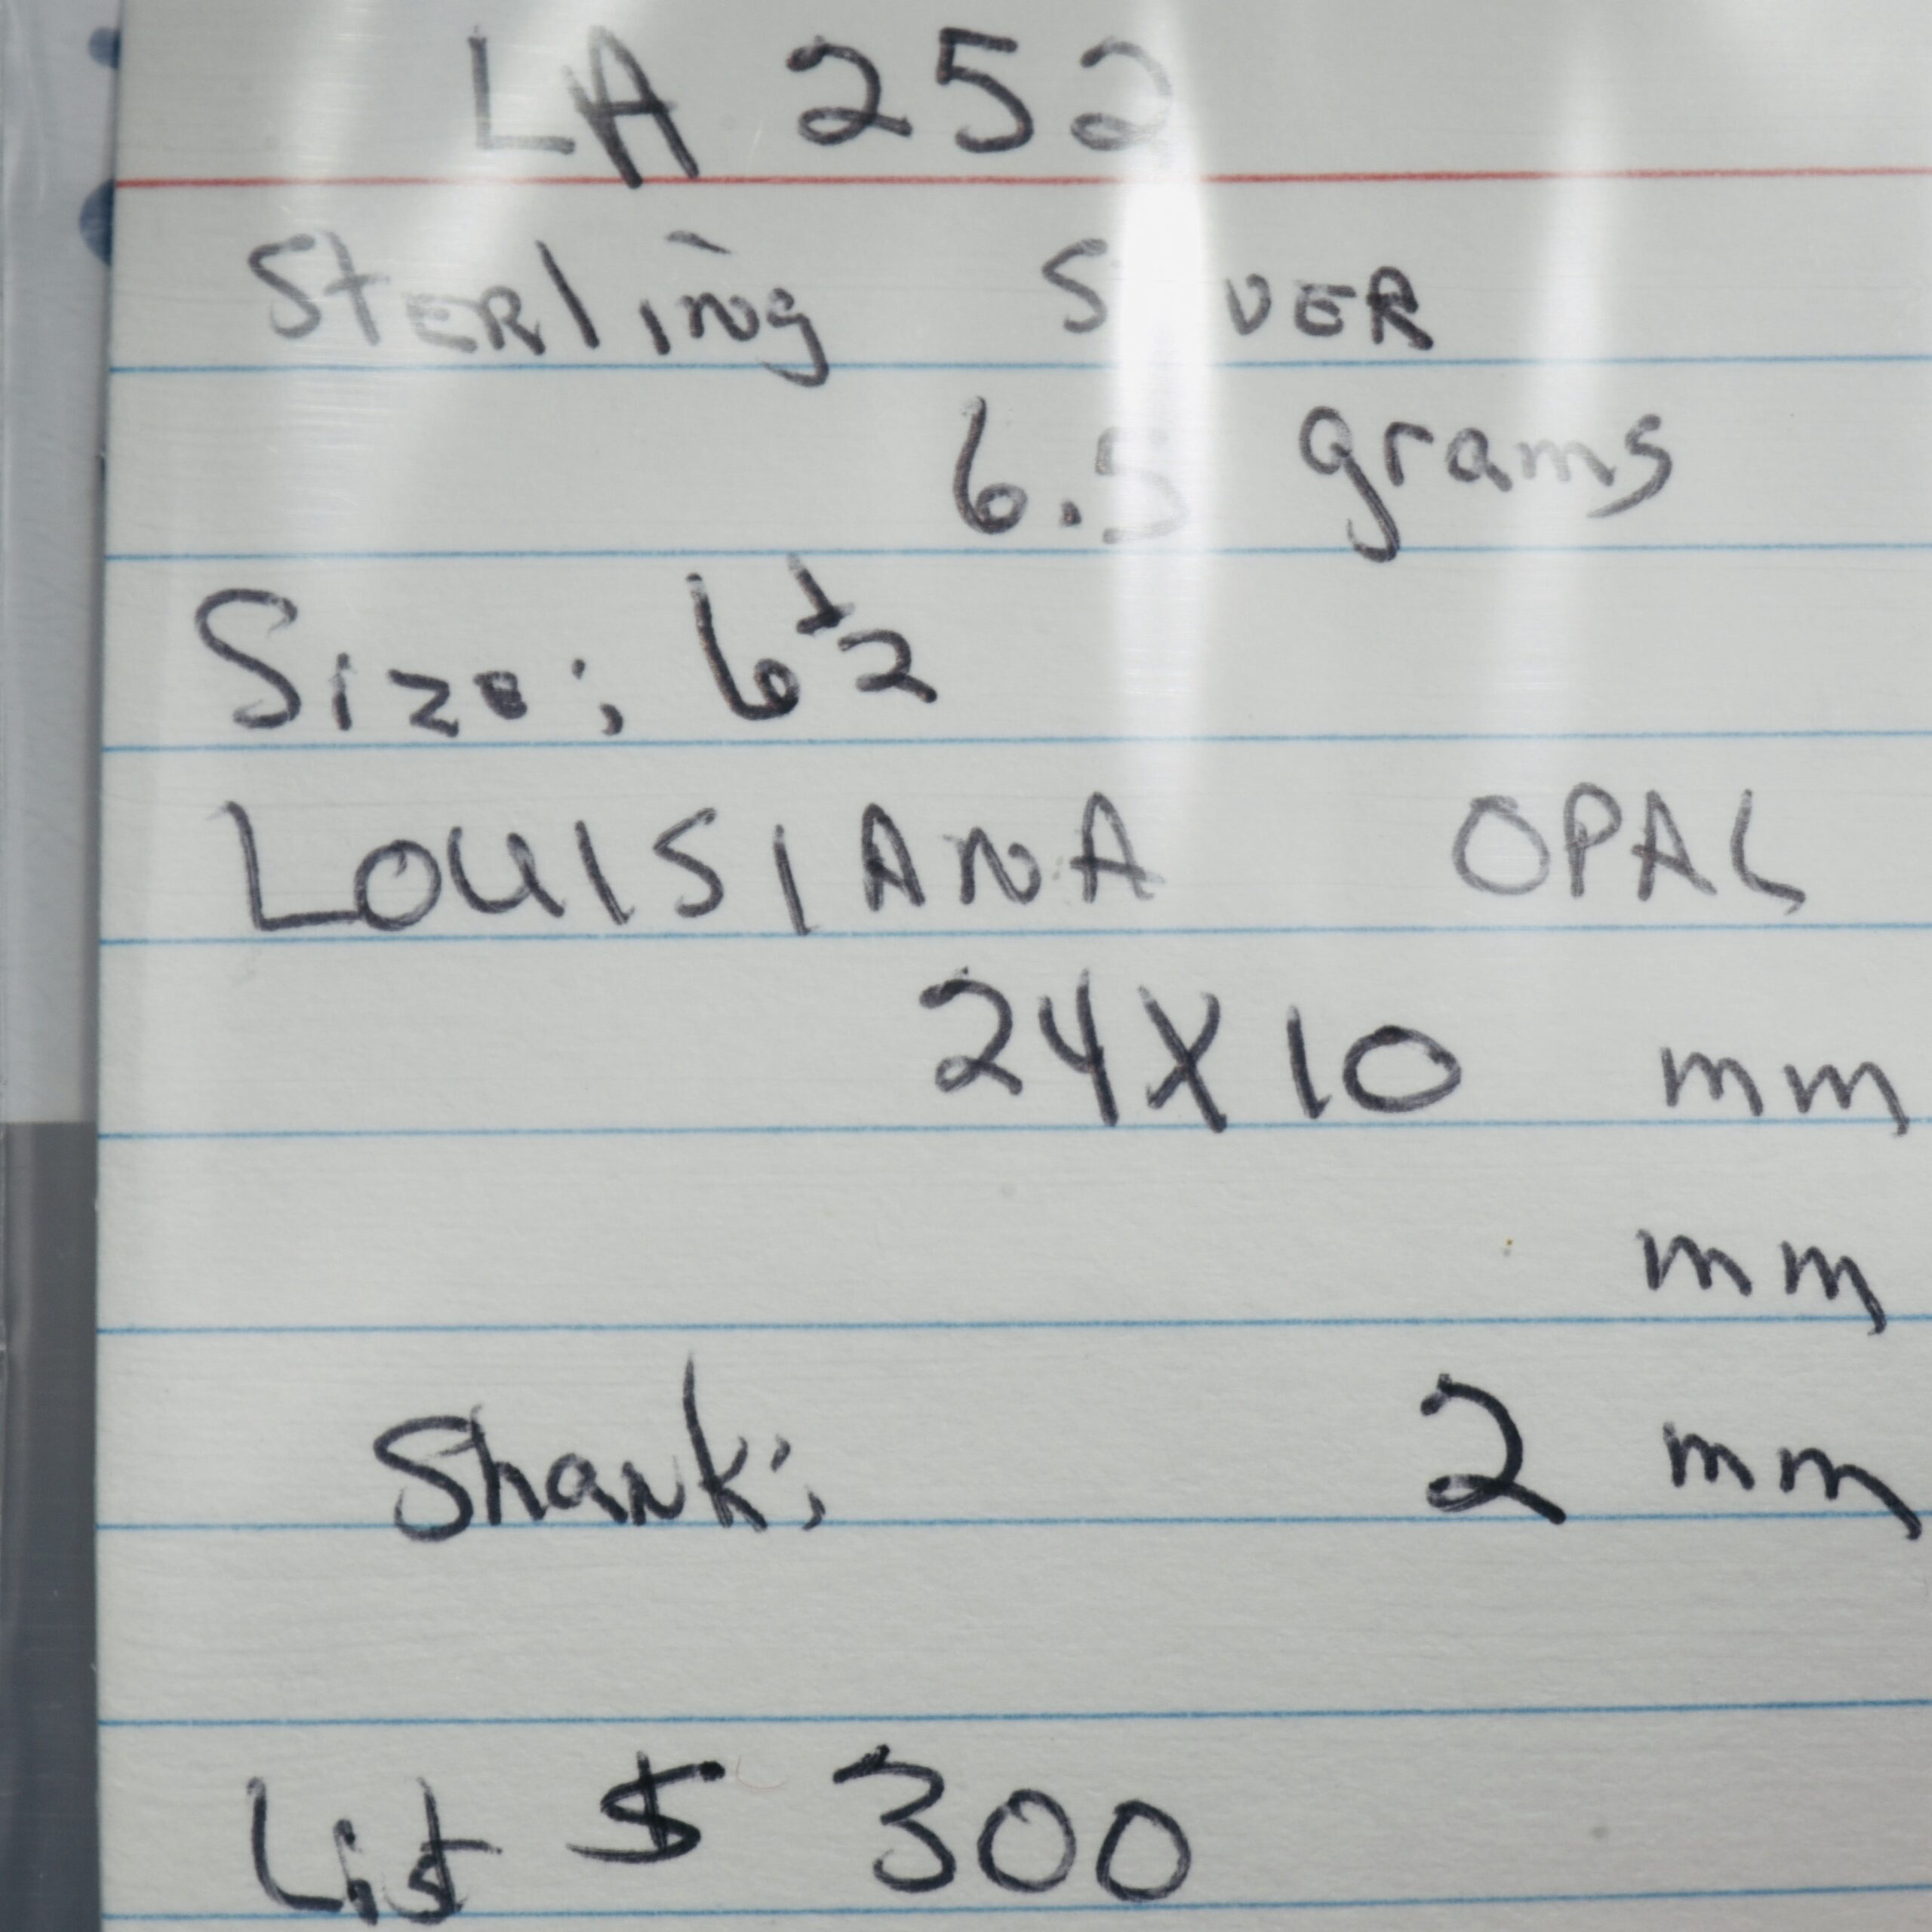 LA 252
Sterling Silver
6.5 grams
Size: 6 1/2
LOUISIANA OPAL
24X10 mm
mm
Shank: 2 mm
List $ 300